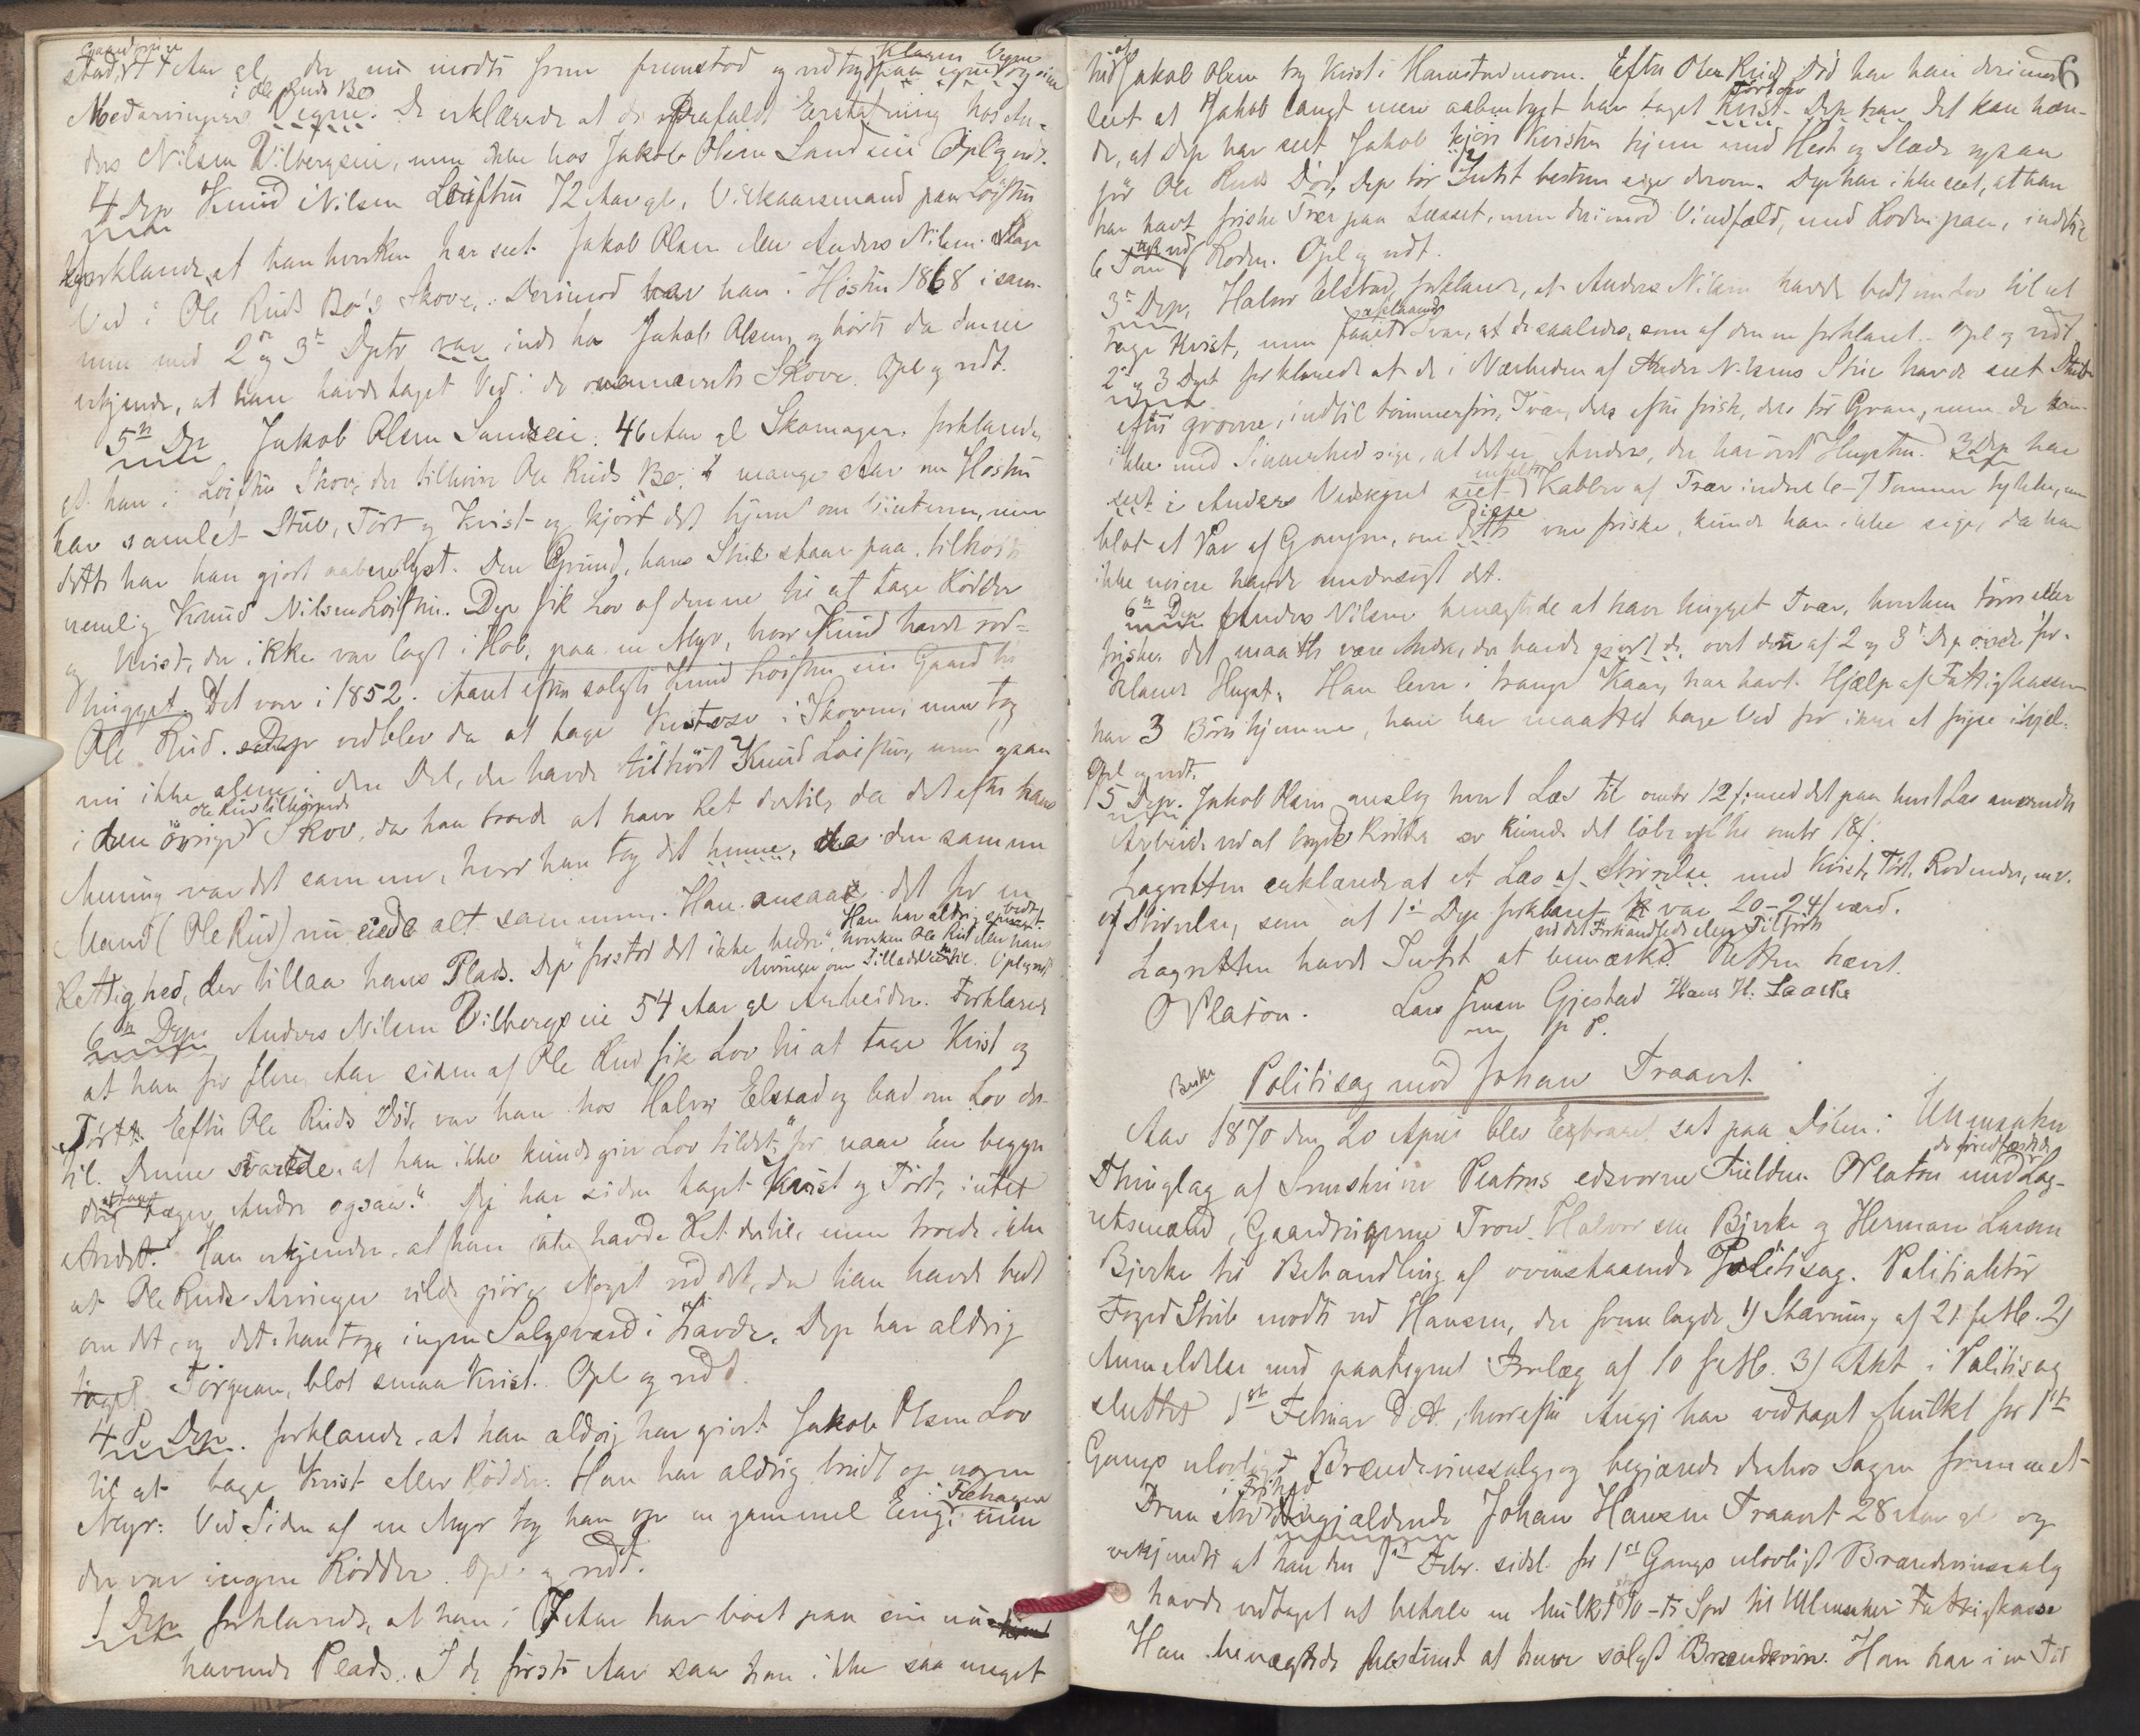 Gaardbruger
stad, 44 Aar gl, der nu mødte frem fremstod og vedtog paa egne og sine
Klagen Vegne
i Ole Ruds Bo
Medarvingers Vegne. De erklærede at de frafaldt Erstatning hos An-
ders Nilsen Vilbergseie, men ikke hos Jakob Olsen Landseie Opl og vedt.
4 Dep Knud Nilsen Løiften 72 Aar gl, Vilkaarsmand paa Løiften
forklarede, at han hverken har seet Jakob Olsen eller Anders Nilsen tage
Ved i Ole Ruds Bo's Skove. Derimod var han i Høsten 1868 i sam-
men med 2n og 3de Depte var inde hos Jakob Olsen, og hørte da denne
erkjende, at han havde taget Ved i de omnævnte Skove. Opl og vedt.
5n Dep Jakob Olsen Landseie, 46 Aar gl Skomager, forklarede
at han i Løiften Skov, der tilhører Ole Ruds Bo, i mange Aar om Høsten
har samlet Stub, Tørt og Kvist og kjørt det hjem om Vinteren, men
dette har han gjort aabenlyst. Den Grund, hans Stue staar paa, tilhørte
nemlig Knud Nilsen Løiften. Dep fik Lov af denne til at tage Rødder
og Kvist, der ikke var lagt i Hob, paa en Myr, hvor Knud havde rod-
hugget. Det var i 1852. Aaret efter solgte Knud Løiften sin Gaard til
Ole Rud. Dep vedblev da at tage Kvist osv i Skoven, men tog
nu ikke alene i den Del, der havde tilhørt Knud Løiften, men ogsaa
Ole Rud tilhørende
i den øvrige Skov, da han troede at have Ret dertil, da det efter hans
Mening var det samme, hvor han tog det henne, da den samme
Mand (Ole Rud) nu eiede alt sammen. Han ansaa det for en
Rettighed, der tillaa hans Plads. Dep "forstod det ikke bedre". Han har aldrig spurgt
hverken Ole Rud eller hans
Arvinger om Tilladelse. Opl og vedt
6n Dep Anders Nilsen Vilbergseie 54 Aar gl Arbeider. Forklarer
at han for flere Aar siden af Ole Rud fik Lov til at tage Kvist og
Tørt. Efter Ole Ruds Død, var han hos Halvor Elstad og bad om Lov der-
til. Denne svarede at han ikke kunde give Lov tildet, "for naar En begyn
der, tager Andre ogsaa." Dep har siden taget Kvist og Tørt, intet
Andet. Han erkjender, at han ikke havde Ret dertil, men troede ikke
at Ole Ruds Arvinger vilde gjøre Noget ved det, da han havde bedt
om det, og det han tog, ingen Salgsværdi havde. Dep har aldrig
taget Tørgran, blot smaa Kvist. Opl og vedt.
4de Dep. forklarede, at han aldrig har givet Jakob Olsen Lov
til at tage Kvist eller Rødder. Han har aldrig brudt op nogen
Myr. Ved Siden af en Myr tog han op en gammel Eng, men
Fæhagen
der var ingen Rødder. Opl og vedt.
1 Dep forklarede, at han i 7 Aar har boet paa sin nu
havende Plads. I de første Aar saa han ikke saa meget
6
til af Jakob Olsen tog Kvist i Hamstadmoen. Efter Ole Ruds Død har han derimod
seet at Jakob langt mere aabenlyst har taget Kvist. Dep har Det kan hæn-
Tørt osv
de, at Dep har seet Jakob kjøre Kvisten hjem med Hest og Slæde ogsaa
før Ole Ruds Død, Dep tør Intet bestemt sige derom. Dep har ikke seet, at han
har havt friske Trær paa Læsset, men derimod Vindfald, med Roden paa, indtil
6 Tom tyk ved Roden. Opl og vedt.
3de Dep, Halvor Elstad, forklarer, at Anders Nilsen havde bedt om Lov til at
tage Kvist, men faaet Svar, at de saaledes, som af denne forklaret. Opl og vedt
2n og 3 Dep forklarede at de i Nærheden af Anders Nilsens Stue havde seet Stub
efter grovere, indtil tømmerføre, Trær, dels efter frisk, dels tør Gran, men de kan
ikke med Sikkerhed sige, at det er Anders, der har øvet Hugsten. 3 Dep har
seet i Anders Vedskjul seet enkelte Kabber af Trær indtil 6-7 Tommer tykke, men
blot et Par af Gangen, om disse var friske, kunde han ikke sige, da han
ikke nøiere havde undersøgt det.
6n Dep Anders Nilsen benægtede at have hugget Trær, hverken tørre eller
friske, det maatte være Andre, der havde gjort de, øvet den af 2 og 3de Dep for-
klarede Hugst. Han lever i trange Kaar, har havt Hjælp af Fattigkassen
har 3 Børn hjemme, han har maattet tage Ved for ikke at fryse ihjel.
Opl og vedt.
5 Dep. Jakob Olsen anslog hvert Læs til omtr 12 s; med det paa hvert Læs anvendte
Arbeide ved at bryde Rødder osv kunde det løbe op til omtr 18 s.
Lagretten erklærede at et Læs af Størrelse med Kvist, Tørt, Rodender, m.v.
af Størrelse, som af 1ste Dep forklaret var 20-24 s værd.
Lagretten havde Intet at bemærke ved det Forhandlede eller Tilførte. Retten hævet.
O Platou. Lars Jensen Gjestad Hans H. Laacke
m p P.
Beske
Politisag mod Johan Traavet.
Aar 1870 den 20 April blev Extraret sat paa Dølen i Ullensaker
Thinglag af Sorenskriver Platous edsvorne Fuldm. O Platou med de foredfæstede Lag-
retsmænd, Gaardbrugerne Trond Halvorsen Bjerke og Herman Larsen
Bjerke til Behandling af ovenstaaende Politisag. Politiaktor
Foged Stub mødte ved Hansen, der fremlagde 1) Stævning af 21 f.M. 2)
Anmeldelse med paategnet Forelæg af 10 f.M. 3) Akt i Politisag
sluttet 1ste Februar d.A., hvorefter Angj har vedtaget Mulkt for 1ste
Gangs ulovligt Brændevinssalg, og begjærede derhos Sagen fremmet.
i Frihed
Frem stod Angjældende Johan Hansen Traavet 28 Aar gl og
vedkjendte at han den 1ste Febr. sidstl. for 1ste Gangs ulovligt Brændevinssalg
havde vedtaget at betale en Mulkt 10 - ti Spd til Ullensaker Fattigkasse
Han benægtede bestemt at have solgt Brændevin. Han har i en Tid